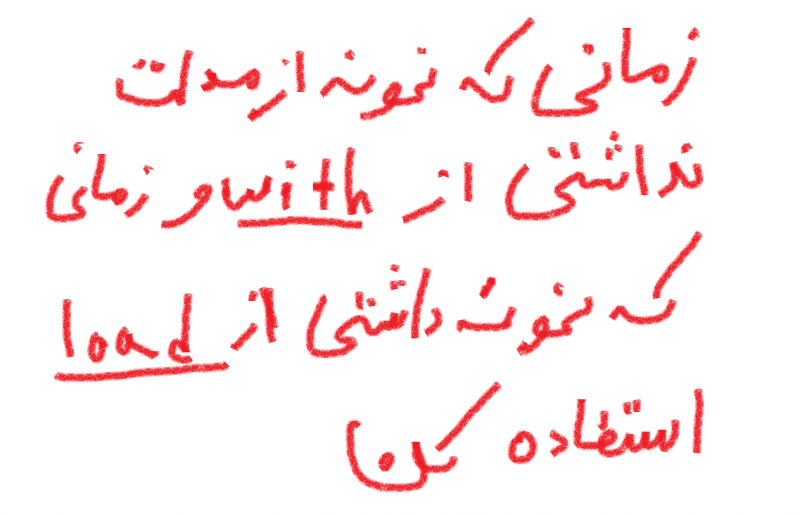 زمانی که نمونه از مدلت
نداشتی از with و زمانی
که نمونه داشتی از load
استفاده کن